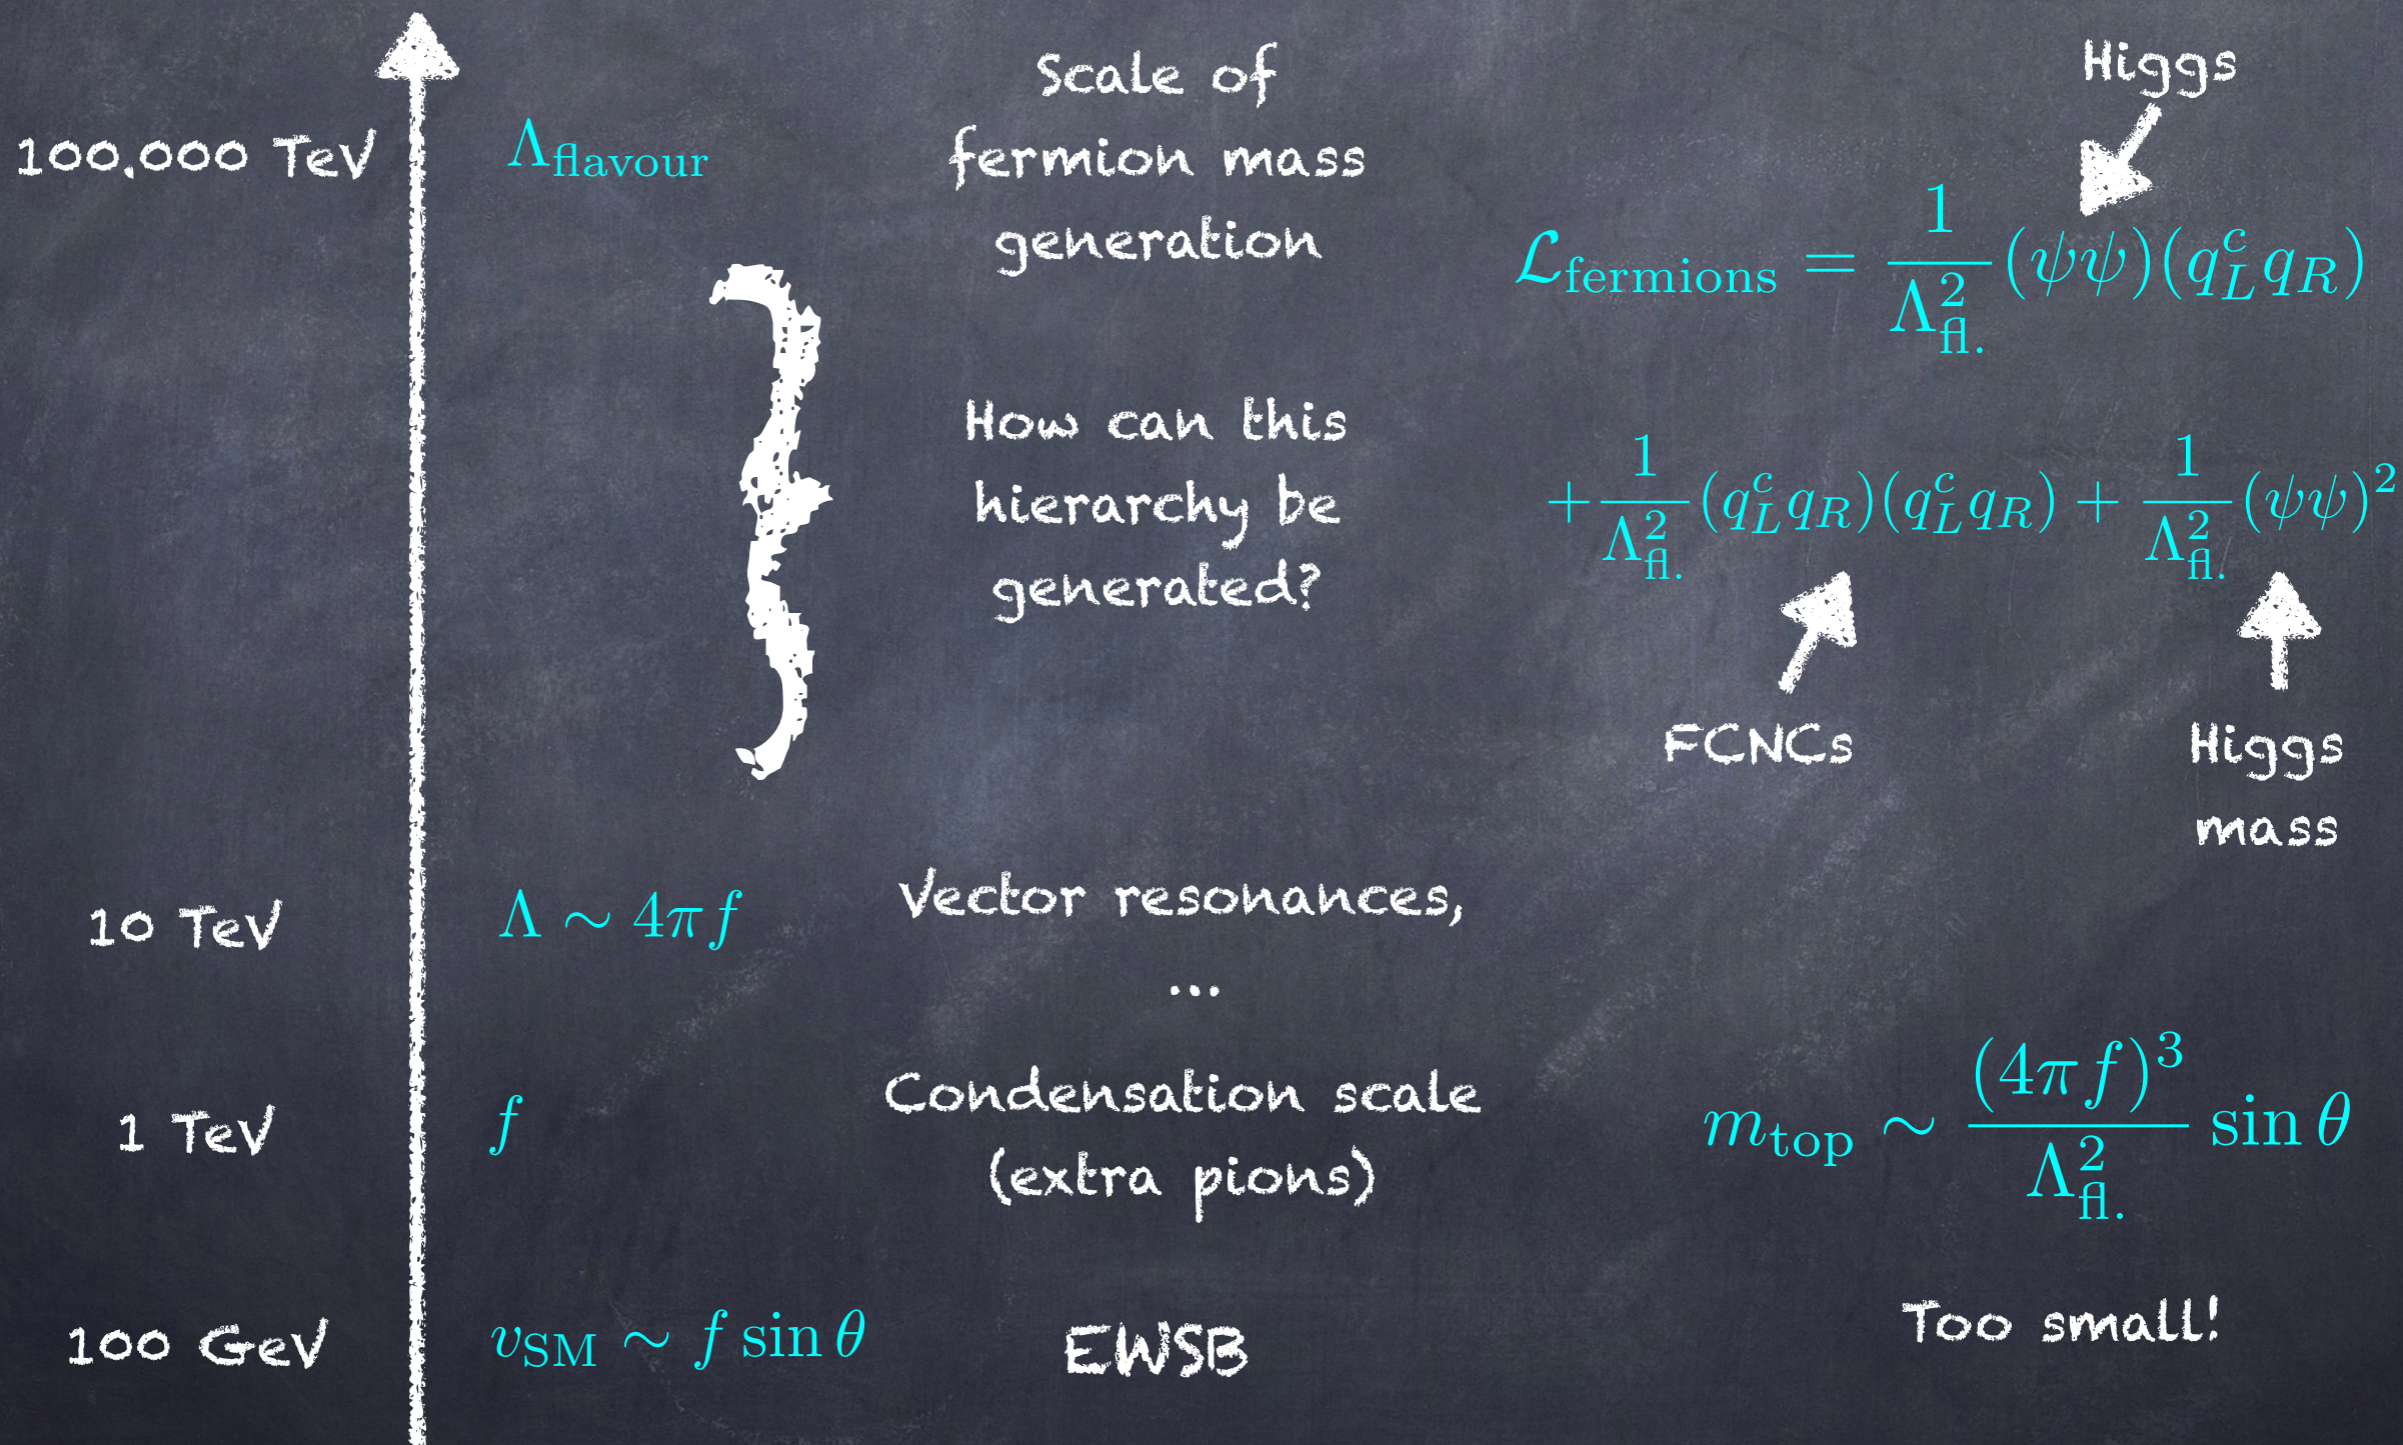 100.000 TeV
Λ_flavour
Scale of
fermion mass
generation
How can this
hierarchy be
generated?
10 TeV
Λ ∼ 4πf
Vector resonances,
...
1 TeV
f
Condensation scale
(extra pions)
100 GeV
v_SM ∼ f sin θ
EWSB
Higgs
ℒ_fermions = 1/Λ²_fl. (ψψ)(q_L^c q_R)
+ 1/Λ²_fl. (q_L^c q_R)(q_L^c q_R) + 1/Λ²_fl. (ψψ)²
FCNCs
Higgs
mass
m_top ∼ (4πf)³/Λ²_fl. sin θ
Too small!